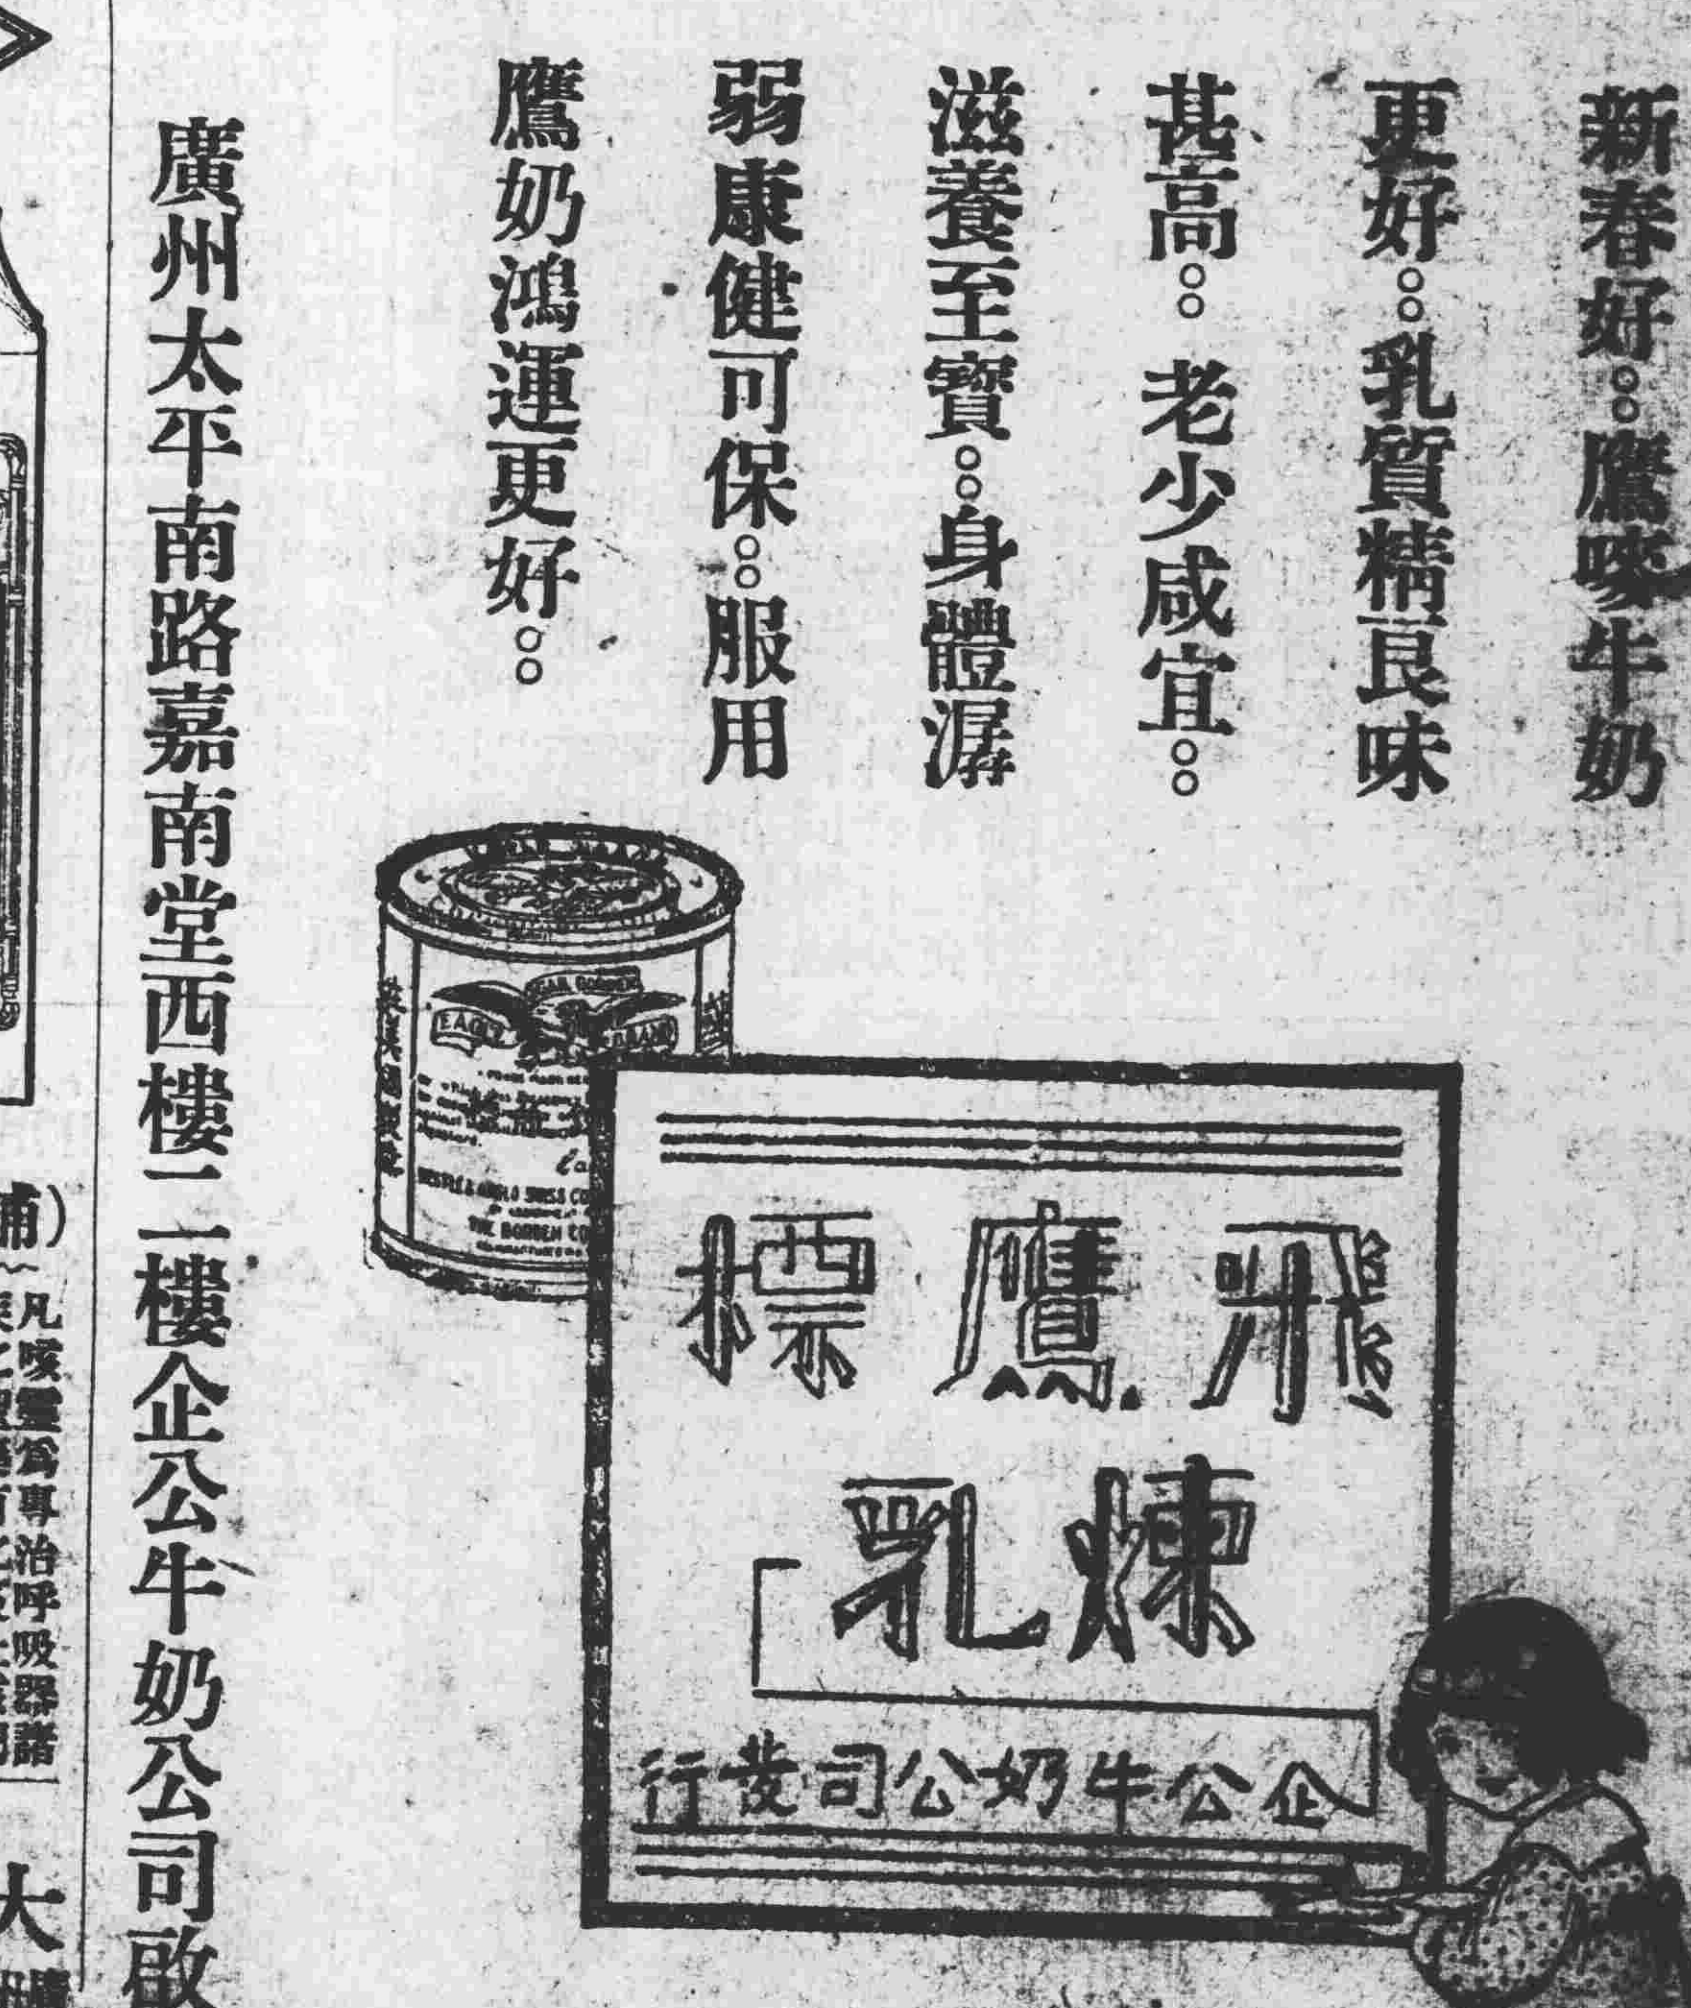 新春好。。鷹嘜牛奶
更好。。乳質精良味
甚高。。老少咸宜。。
滋養至寶。。身體潺
弱康健可保。。服用
鷹奶鴻運更好。。
EAGLE BRAND
NESTLÉ & ANGLO SWISS CO
THE BORDEN CO
飛鷹標
煉乳
企公牛奶公司發行
廣州太平南路嘉南堂西樓二樓企公牛奶公司啟
凡咳靈為專治呼吸器諸
大